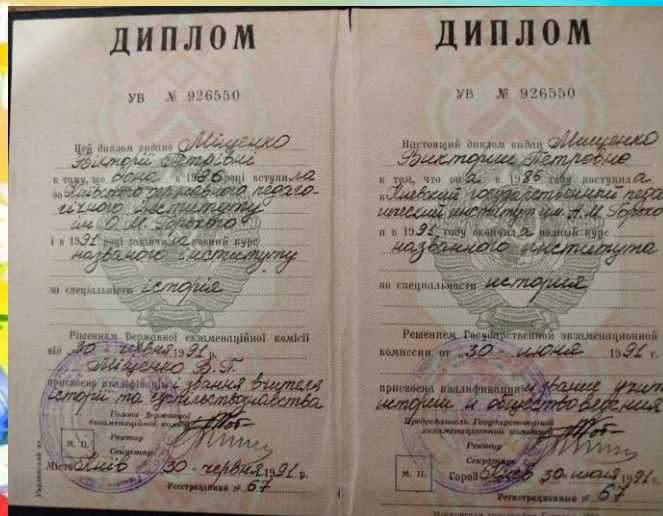 ДИПЛОМ
УВ № 926550
Цей диплом видано Міщенко
Вікторії Петрівні
в тому, що вона в 1986 році вступила
до Київського державного педаго-
гічного інституту
ім. О. М. Горького
і в 1991 році закінчила повний курс
названого інституту
за спеціальністю історія
Рішенням Державної екзаменаційної комісії
від 30 червня 1991 р.
Міщенко В. П.
присвоєно кваліфікацію і звання вчителя
історії та суспільствознавства
Голова Державної
екзаменаційної комісії
Ректор
Секретар
М. П.
Місто Київ 30 червня 1991 р.
Реєстраційний № 67
Украинский яз.
ДИПЛОМ
УВ № 926550
Настоящий диплом выдан Мищенко
Виктории Петровне
в том, что она в 1986 году поступила
в Киевский государственный педаго-
гический институт им. А. М. Горького
и в 1991 году окончила полный курс
названного института
по специальности история
Решением Государственной экзаменационной
комиссии от 30 июня 1991 г.
присвоена квалификация и звание
истории и обществоведения
Председатель Государственной
экзаменационной комиссии
Ректор
Секретарь
М. П.
Город Киев 30 июня 1991 г.
Регистрационный № 67